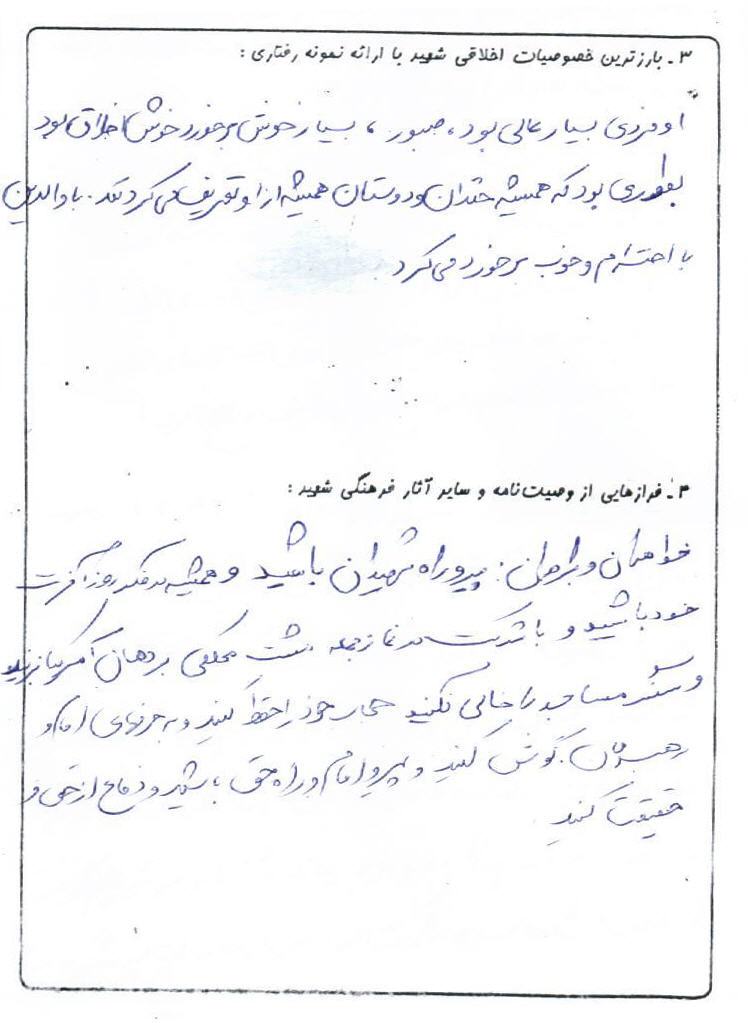 ۳ـ بارزترین خصوصیات اخلاقی شهید با ارائه نمونه رفتاری :
او فردی بسیار عالی بود، صبور، بسیار خوش برخورد خوش اخلاق بود
بطوری بود که همیشه خندان و دوستان همیشه از او تعریف می کردند. با والدین
با احترام و خوب برخورد می کرد.
۴ـ فرازهایی از وصیت‌نامه و سایر آثار فرهنگی شهید :
خواهران و برادران: پیرو راه شهیدان باشید و همیشه در فکر روز آخرت
خود باشید و با شرکت در نماز جمعه مشت محکمی بر دهان آمریکا بزنید
و سنگر مساجد را خالی نکنید حجاب خود را حفظ کنید و به حرفهای امام و
رهبرمان گوش کنید و پیرو امام و راه حق باشید و دفاع از حق و
حقیقت کنید.